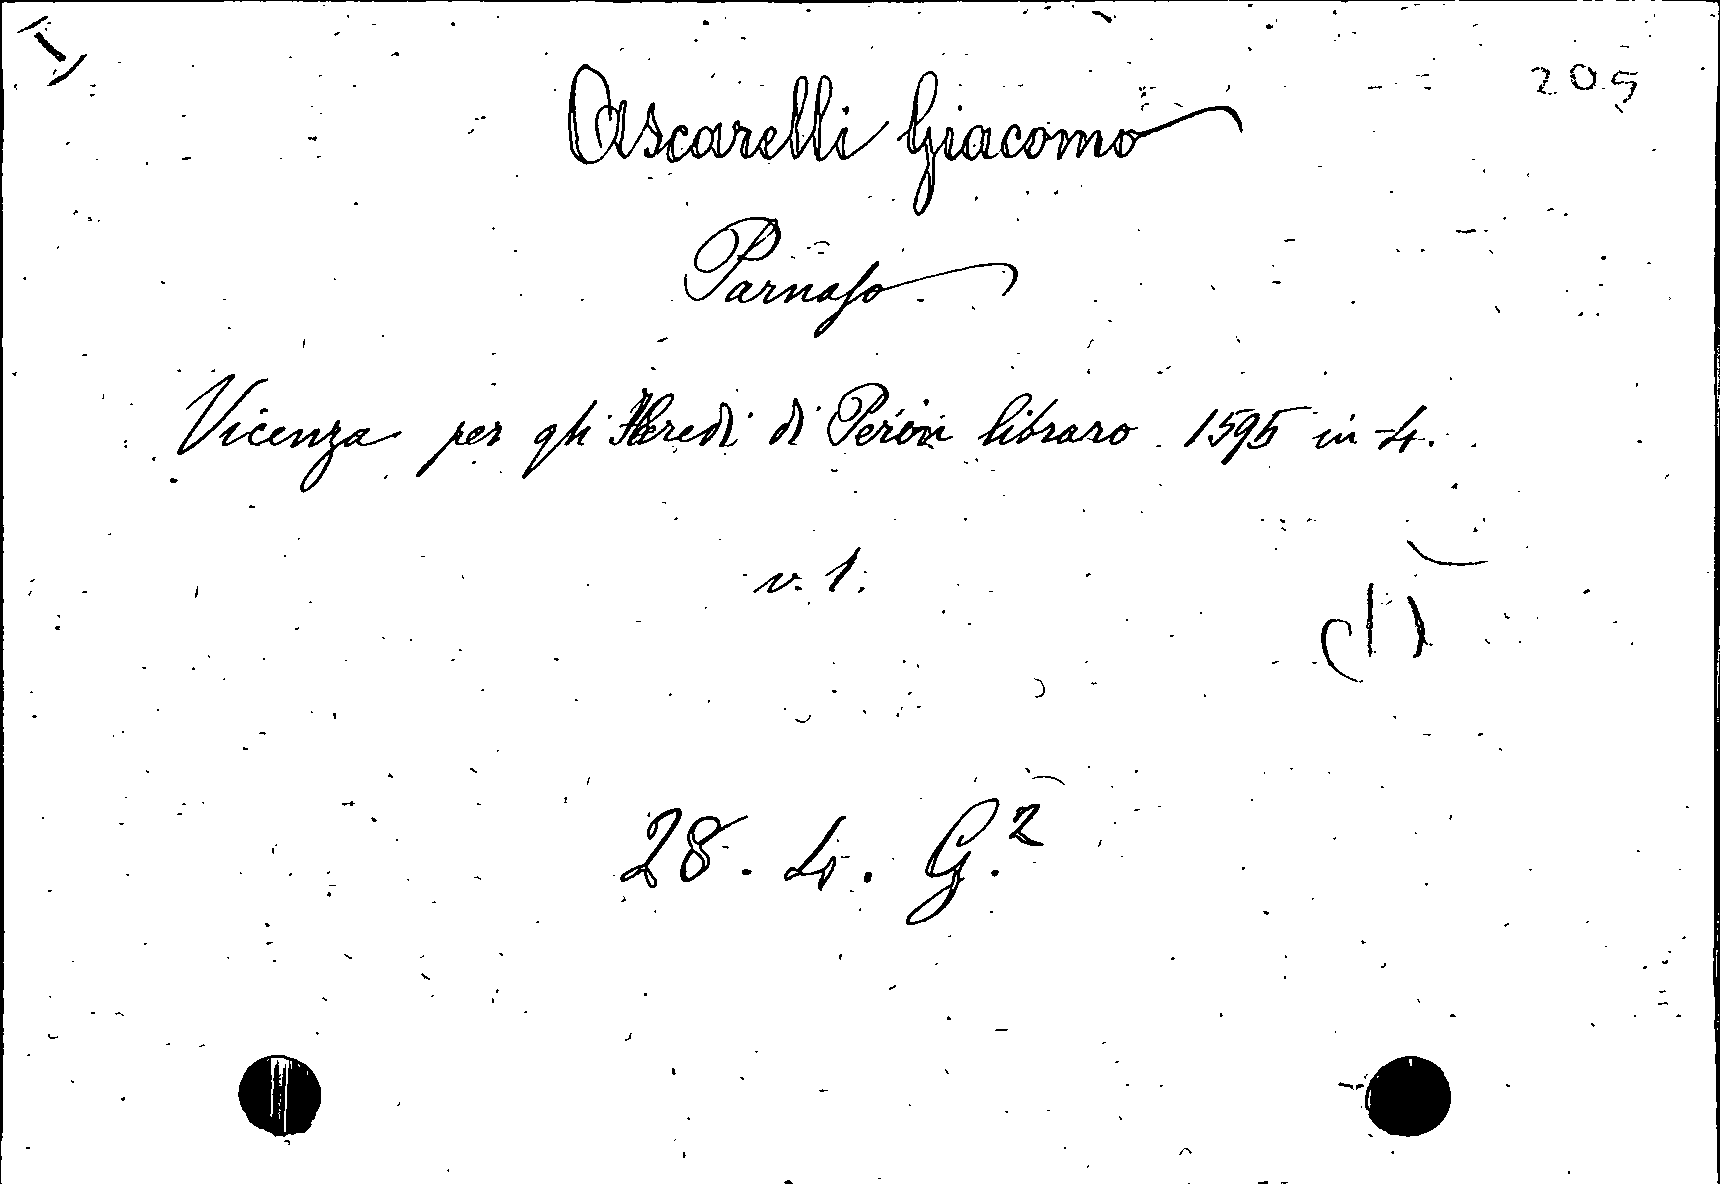 I
205
Ascarelli Giacomo
Parnaso
Vicenza per gli Heredi di Perin libraro 1595 in 4.
v. 1.
28. 4. G.²